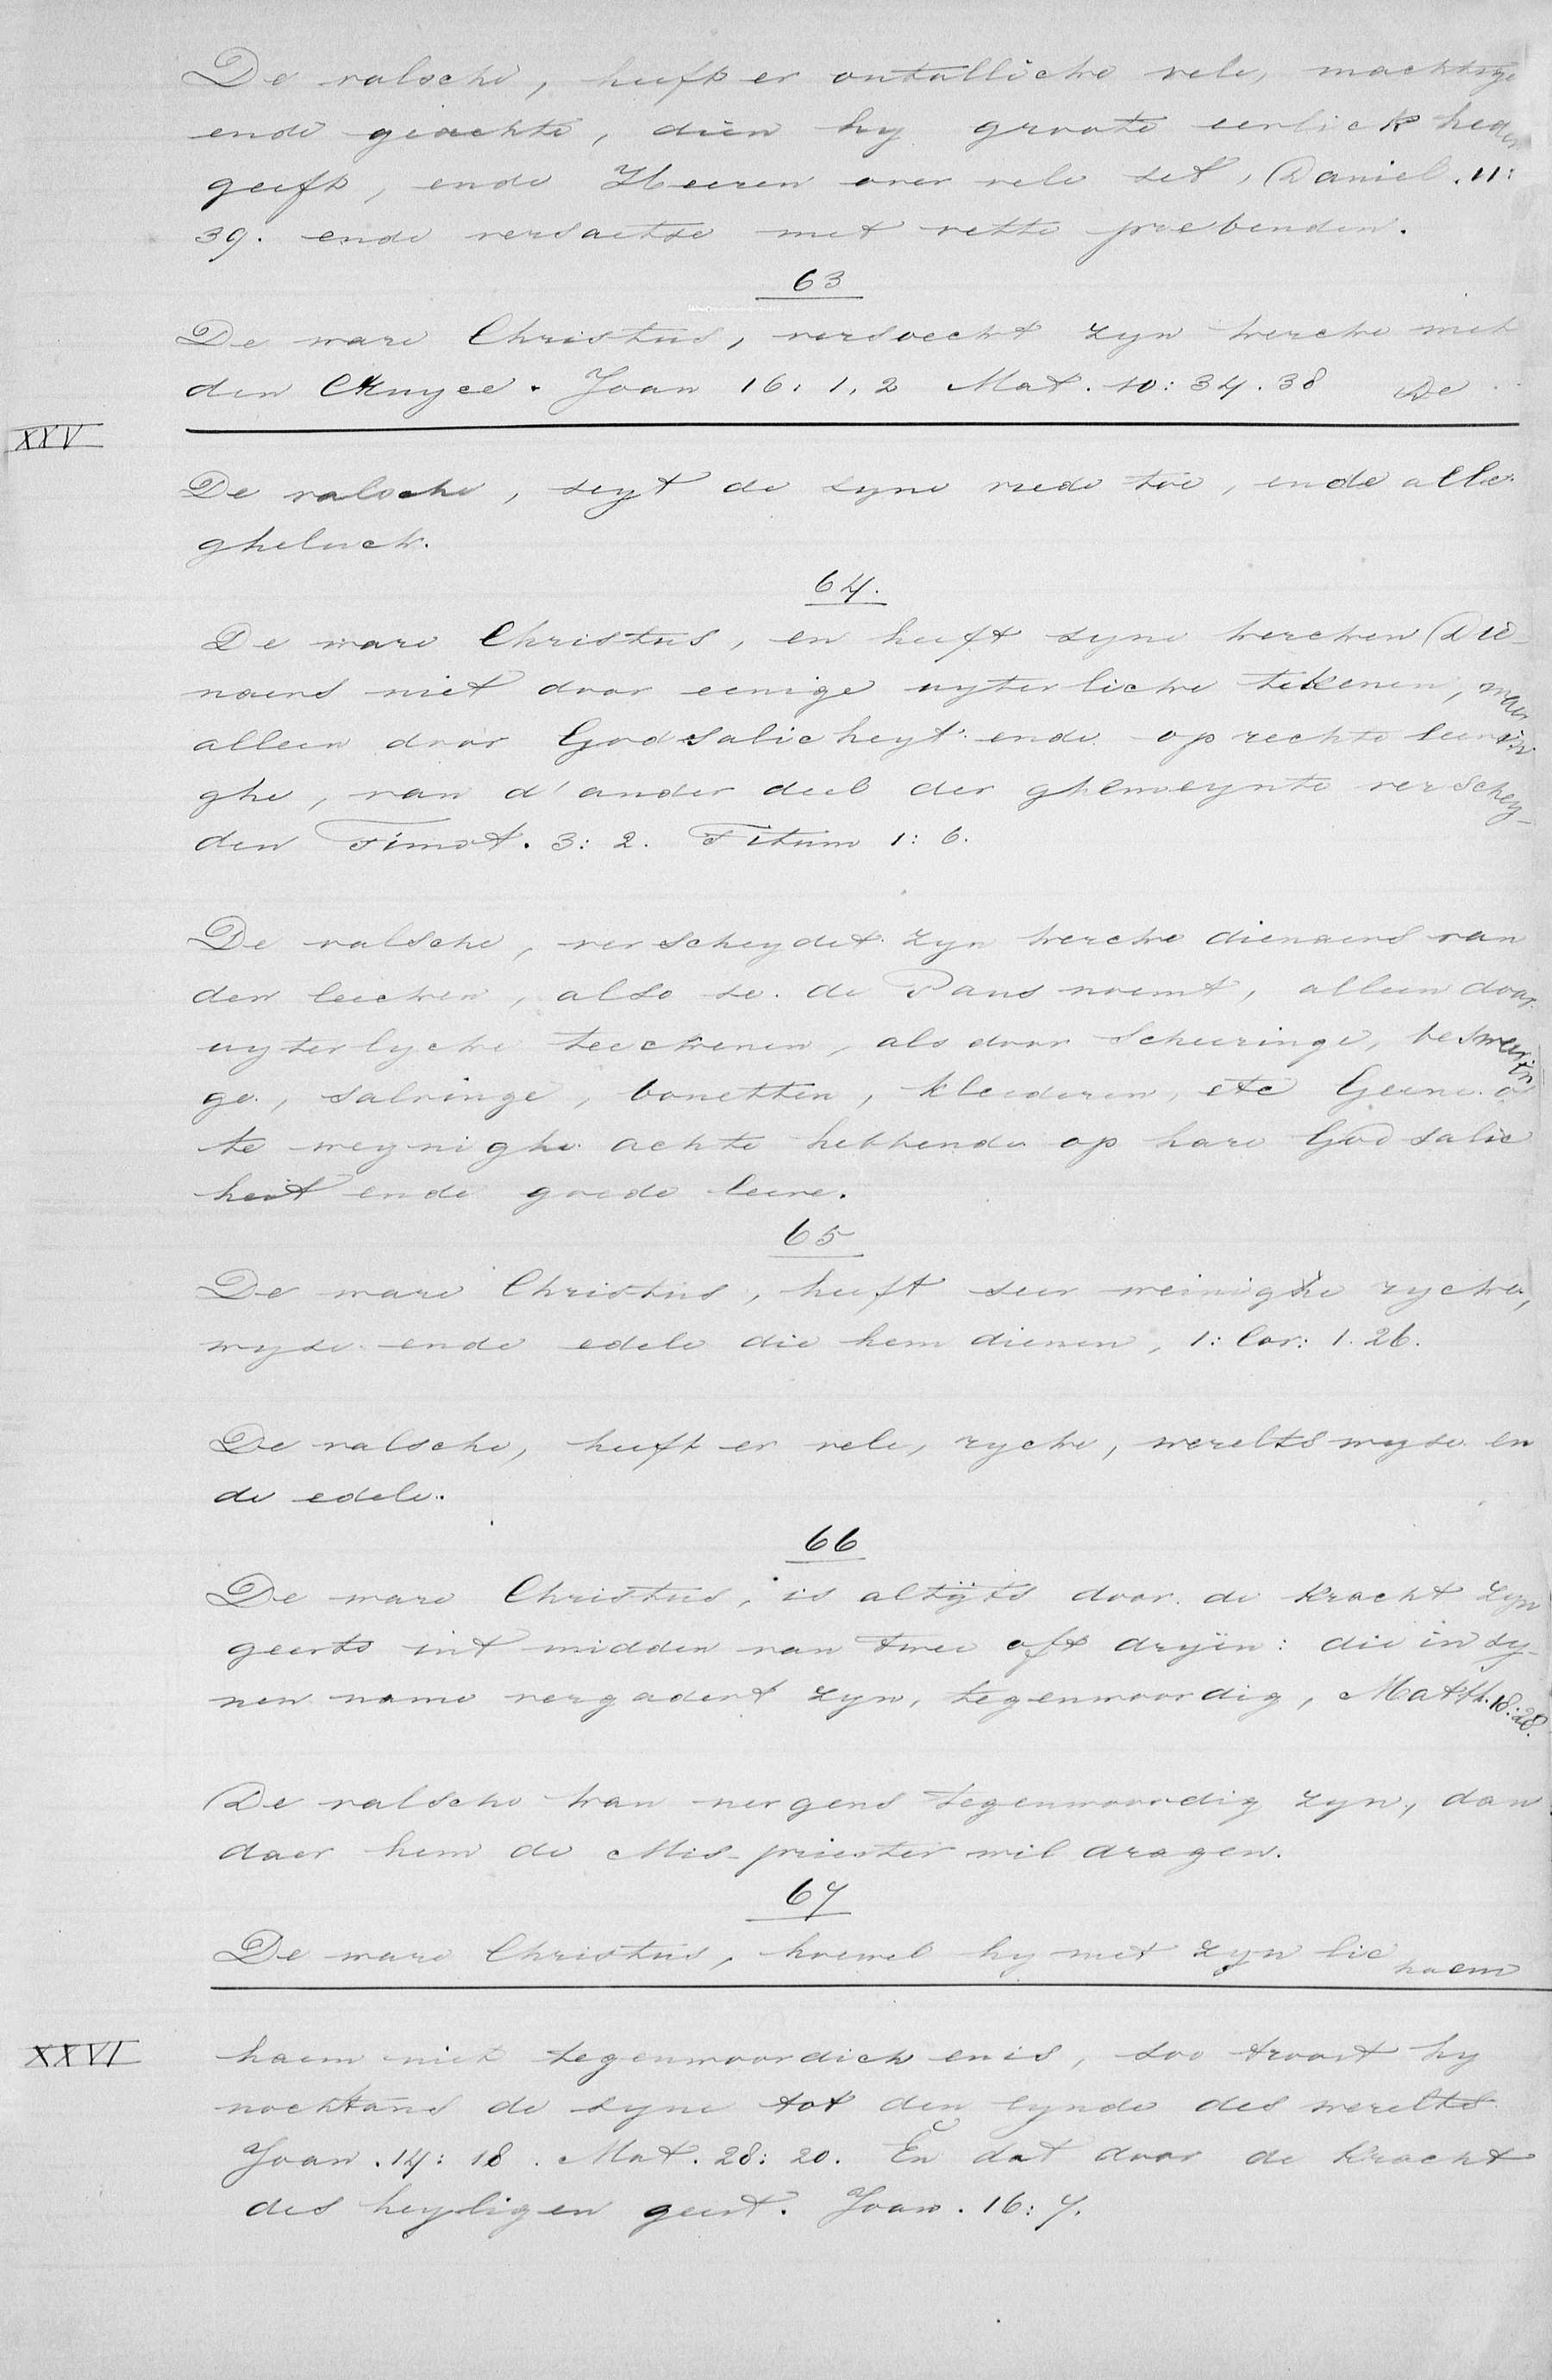 De valsche, heeft er ontallicke vele, machtige
ende geächte, dien hy groote eerlickheden
geeft, ende Heeren over vele set, Daniel. 11:
39. ende versaetse met vette prebenden.
63
De ware Christus, versoeckt zyn kercke met
den Cruyce. Joan 16: 1, 2 Mat. 10: 34. 38 De
XXV
De valsche, seyt de syne vrede toe, ende alle
gheluck.
64.
De ware Christus, en heeft syne kercken Die-
naers niet door eenige uyterlicke tekenen, maer
alleen door Godsalicheyt ende oprechte leerin
ghe, van d'ander deel der ghemeynte verschey-
den Timot. 3: 2. Titum 1: 6.
De valsche, verscheydet zyn kercke dienaers van
den leecken, also se de Paus noemt, alleen door
uyterlycke teeckenen, als door Scheeringe, besweerin
ge, salvinge, bonetten, kleederen, etc Geene o
te weynighe achte hebbende op hare Godsalic
heit ende goede leere.
65
De ware Christus, heeft seer weinighe rycke,
wyse ende edele die hem dienen, 1: Cor: 1. 26.
De valsche, heeft er vele, rycke, wereltswyse en
de edele.
66
De ware Christus, is altijts door de kracht zyn
geests int midden van twee oft dryën: die in sy-
nen name vergadert zyn, tegenwoordig, Matth. 18: 28.
De valsche kan nergens tegenwoordig zyn, dan
daer hem de Mis-priester wil dragen.
67
De ware Christus, hoewel hy met zyn lic haem
XXVI
haem niet tegenwoordich en is, soo troost hy
nochtans de syne tot den eynde des werelts
Joan. 14: 18. Mat. 28: 20. En dat door de kracht
des heyligen geest. Joan. 16: 7.